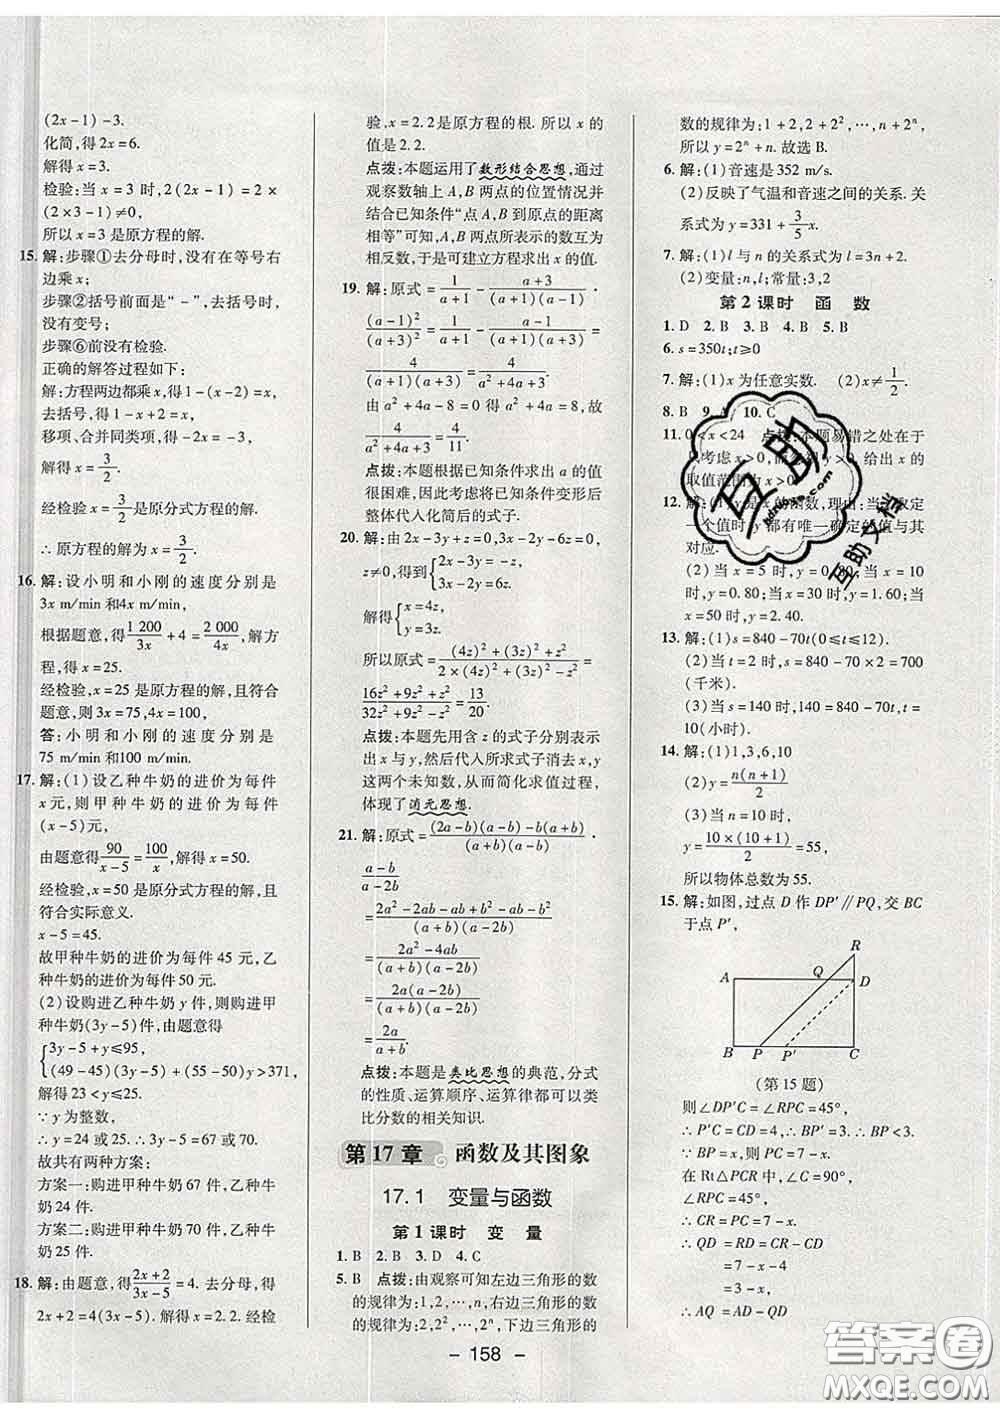 (2x-1)-3.
化简,得2x=6.
解得x=3.
检验:当x=3时,2(2x-1)=2×
(2×3-1)≠0,
所以x=3是原方程的解.
15. 解:步骤①去分母时,没有在等号右
边乘x;
步骤②括号前面是“-”,去括号时,
没有变号;
步骤⑥前没有检验.
正确的解答过程如下:
解:方程两边都乘x,得1-(x-2)=x,
去括号,得1-x+2=x,
移项、合并同类项,得-2x=-3,
解得x=3/2.
经检验,x=3/2是原方程的解,
∴原方程的解为x=3/2.
16. 解:设小明和小刚的速度分别是
3x m/min和4x m/min,
根据题意,得1 200/3x+4=2 000/4x,解方
程,得x=25.
经检验,x=25是原方程的解,且符合
题意,则3x=75,4x=100,
答:小明和小刚的速度分别是
75 m/min和100 m/min.
17. 解:(1)设乙种牛奶的进价为每件
x元,则甲种牛奶的进价为每件
(x-5)元,
由题意得90/(x-5)=100/x,解得x=50.
经检验,x=50是原分式方程的解,且
符合实际意义.
x-5=45.
故甲种牛奶的进价为每件45元,乙
种牛奶的进价为每件50元.
(2)设购进乙种牛奶y件,则购进甲
种牛奶(3y-5)件,由题意得
{3y-5+y≤95,
(49-45)(3y-5)+(55-50)y>371,
解得23<y≤25.
∵y为整数,
∴y=24或25.
故共有两种方案:
方案一:购进甲种牛奶67件,乙种牛
奶24件;
方案二:购进甲种牛奶70件,乙种牛
奶25件.
18. 解:由题意,得(2x+2)/(3x-5)=4.去分母,得
2x+2=4(3x-5).解得x=2.2.经检
验,x=2.2是原方程的根.所以x的
值是2.2.
点拨:本题运用了数形结合思想,通过
观察数轴上A,B两点的位置情况并
结合已知条件“点A,B到原点的距离
相等”可知,A,B两点所表示的数互为
相反数,于是可建立方程求出x的值.
19. 解:原式=1/(a+1)-(a+3)/((a+1)(a-1))·
(a-1)²/((a+1)(a+3))=1/(a+1)-(a-1)/((a+1)²)=
4/((a+1)(a+3))=4/(a²+4a+3).
由a²+4a-8=0得a²+4a=8,故
4/(a²+4a+3)=4/11.
点拨:本题根据已知条件求出a的值
很困难,因此考虑将已知条件变形后
整体代入化简后的式子.
20. 解:由2x-3y+z=0,3x-2y-6z=0,
z≠0,得到{2x-3y=-z,
3x-2y=6z.
解得{x=4z,
y=3z.
所以原式=((4z)²+(3z)²+z²)/(2×(4z)²+(3z)²-z²)=
(16z²+9z²+z²)/(32z²+9z²-z²)=13/20.
点拨:本题先用含z的式子分别表示
出x,y,然后代入所求式子消去x,y
这两个未知数,从而简化求值过程,
体现了消元思想.
21. 解:原式=((2a-b)(a-b)-b(a+b))/((a+b)(a-b))·
(a-b)/(a-2b)
=(2a²-2ab-ab+b²-ab-b²)/((a+b)(a-2b))
=(2a²-4ab)/((a+b)(a-2b))
=2a(a-2b)/((a+b)(a-2b))
=2a/(a+b).
点拨:本题是类比思想的典范,分式
的性质、运算顺序、运算律都可以类
比分数的相关知识.
第17章 函数及其图象
17.1 变量与函数
第1课时 变 量
1. B 2. B 3. D 4. C
5. B 点拨:由观察可知左边三角形的数
的规律为:1,2,…,n,右边三角形的数
的规律为:2,2²,…,2ⁿ,下边三角形的
数的规律为:1+2,2+2²,…,n+2ⁿ,
所以y=2ⁿ+n.故选B.
6. 解:(1)音速是352 m/s.
(2)反映了气温和音速之间的关系.关
系式为y=331+3/5x.
7. 解:(1)l与n的关系式为l=3n+2.
(2)变量:n,l;常量:3,2
第2课时 函 数
1. D 2. B 3. B 4. B 5. B
6. s=350t;t≥0
7. 解:(1)x为任意实数. (2)x≠1/2.
8. B 9. A 10. C
11. 0<x<24 点拨:本题易错之处在于
只考虑x>0,而忽略y>0,给出x的
取值范围为x>0.
12. 解:(1)y是x的函数,理由:当x取定
一个值时,y都有唯一确定的值与其
对应.
(2)当x=5时,y=0.80;当x=
10时,y=0.80;当x=30时,y=1.60;当
x=50时,y=2.40.
13. 解:(1)s=840-70t(0≤t≤12).
(2)当t=2时,s=840-70×2=700
(千米).
(3)当s=140时,140=840-70t,t=
10(小时).
14. 解:(1)1,3,6,10
(2)y=n(n+1)/2
(3)当n=10时,
y=10×(10+1)/2=55,
所以物体总数为55.
15. 解:如图,过点D作DP′∥PQ,交BC
于点P′,
R
A Q D
B P P′ C
(第15题)
则∠DP′C=∠RPC=45°,
∴P′C=CD=4,∠R=45°.
∵BP=x,∴PC=7-x.
在Rt△PCR中,
∵∠RPC=∠R=45°,
∴CR=PC=7-x.
∴QD=RD=CR-CD
=7-x-4
=3-x.
∴AQ=AD-QD
- 158 -
互助
互助文档
答案圈
MXQE.COM